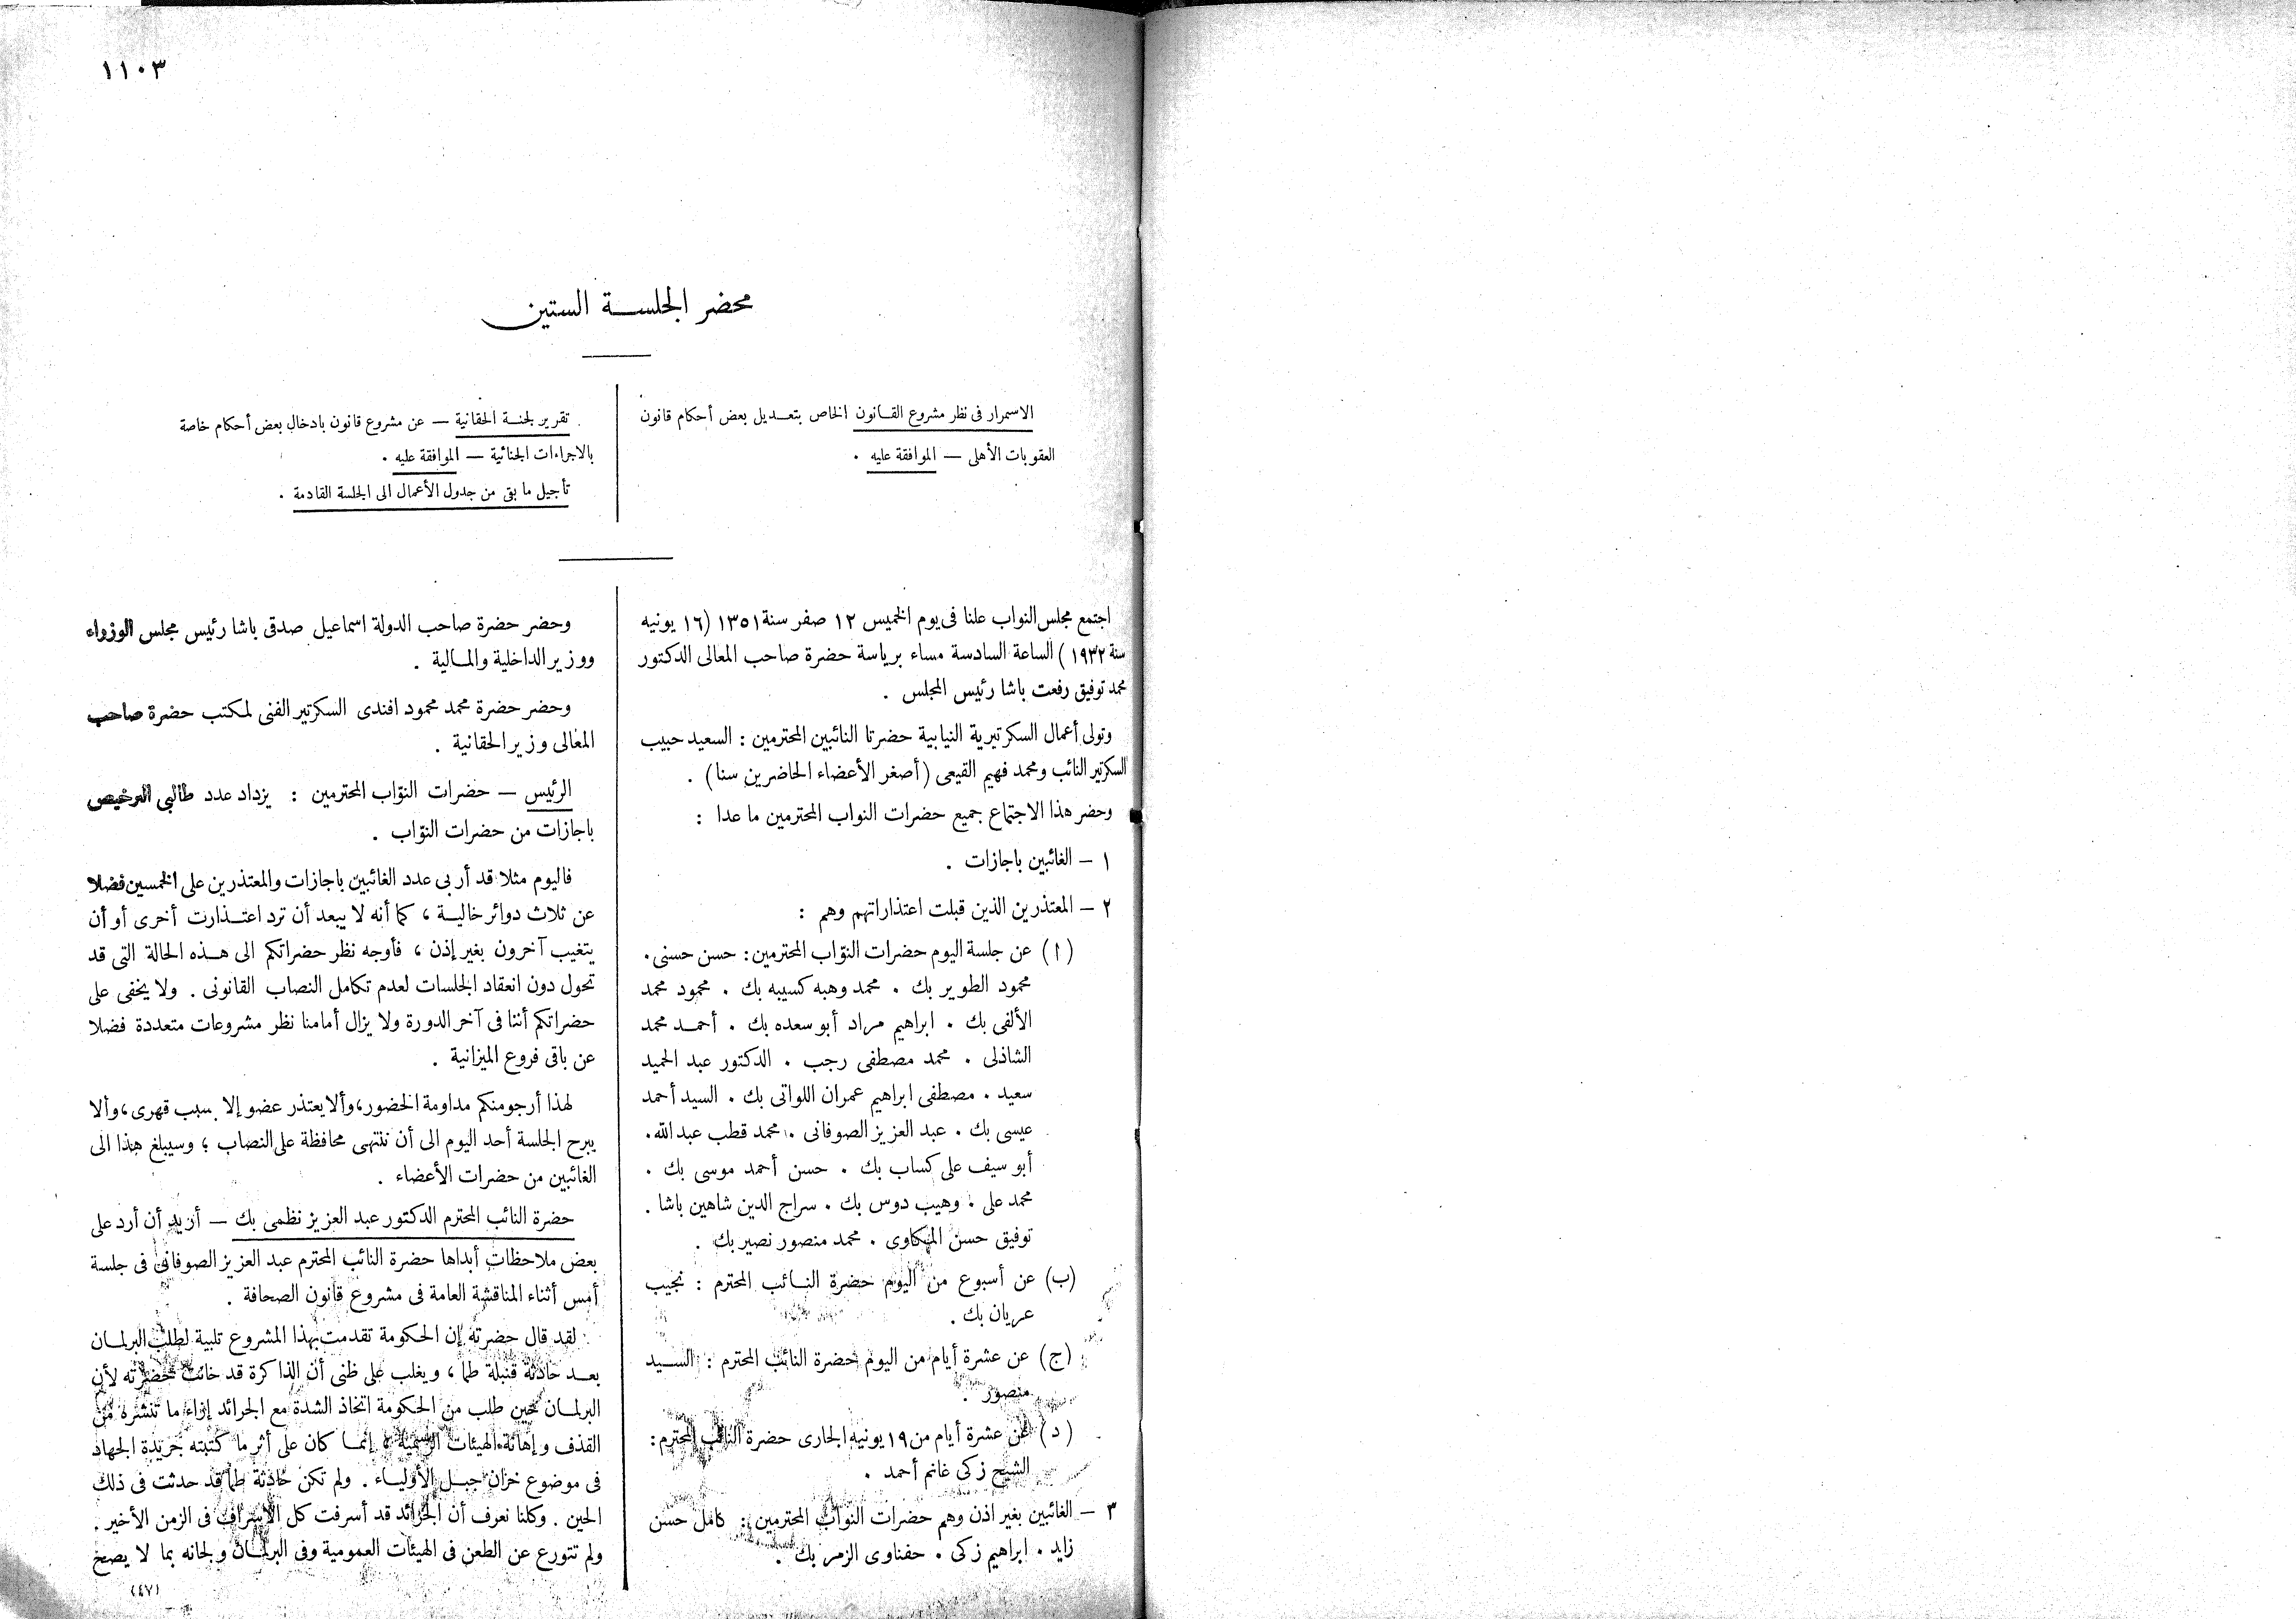 ١١٠٣
محضر الجلسة الستين
الاسمرار فى نظر مشروع القانون الخاص بتعديل بعض أحكام قانون
العقوبات الأهلى — الموافقة عليه .
تقرير لجنة الحقانية — عن مشروع قانون بادخال بعض أحكام خاصة
بالاجراءات الجنائية — الموافقة عليه .
تأجيل ما بقى من جدول الأعمال الى الجلسة القادمة .
اجتمع مجلس النواب علنا فى يوم الخميس ١٢ صفر سنة ١٣٥١ (١٦ يونيه
سنة ١٩٣٢) الساعة السادسة مساء برياسة حضرة صاحب المعالى الدكتور
محمد توفيق رفعت باشا رئيس المجلس .
وتولى أعمال السكرتيرية النيابية حضرتا النائبين المحترمين : السعيد حبيب
السكرتير النائب ومحمد فهيم القيعى (أصغر الأعضاء الحاضرين سنا) .
وحضر هذا الاجتماع جميع حضرات النواب المحترمين ما عدا :
١ — الغائبين باجازات .
٢ — المعتذرين الذين قبلت اعتذاراتهم وهم :
(ا) عن جلسة اليوم حضرات النوّاب المحترمين : حسن حسنى .
محمود الطوير بك . محمد وهبه كسيبه بك . محمود محمد
الألفى بك . ابراهيم مراد أبو سعده بك . أحمد محمد
الشاذلى . محمد مصطفى رجب . الدكتور عبد الحميد
سعيد . مصطفى ابراهيم عمران اللواتى بك . السيد أحمد
عيسى بك . عبد العزيز الصوفانى . محمد قطب عبد الله .
أبو سيف على كساب بك . حسن أحمد موسى بك .
محمد على . وهيب دوس بك . سراج الدين شاهين باشا .
توفيق حسن المنكاوى . محمد منصور نصير بك .
(ب) عن أسبوع من اليوم حضرة النائب المحترم : نجيب
عريان بك .
(ج) عن عشرة أيام من اليوم حضرة النائب المحترم : السيد
منصور .
(د) عن عشرة أيام من ١٩ يونيه الجارى حضرة النائب المحترم :
الشيخ زكى غانم أحمد .
٣ — الغائبين بغير اذن وهم حضرات النوّاب المحترمين : كامل حسن
زايد . ابراهيم زكى . حفناوى الزمر بك .
وحضر حضرة صاحب الدولة اسماعيل صدقى باشا رئيس مجلس الوزراء
ووزير الداخلية والمالية .
وحضر حضرة محمد محمود افندى السكرتير الفنى لمكتب حضرة صاحب
المعالى وزير الحقانية .
الرئيس — حضرات النوّاب المحترمين : يزداد عدد طالبى الترخيص
باجازات من حضرات النوّاب .
فاليوم مثلا قد أربى عدد الغائبين باجازات والمعتذرين على الخمسين فضلا
عن ثلاث دوائر خالية ، كما أنه لا يبعد أن ترد اعتذارت أخرى أو أن
يتغيب آخرون بغير إذن ، فأوجه نظر حضراتكم الى هذه الحالة التى قد
تحول دون انعقاد الجلسات لعدم تكامل النصاب القانونى . ولا يخفى على
حضراتكم أننا فى آخر الدورة ولا يزال أمامنا نظر مشروعات متعددة فضلا
عن باقى فروع الميزانية .
لهذا أرجو منكم مداومة الحضور ، وألا يعتذر عضو إلا بسبب قهرى ، وألا
يبرح الجلسة أحد اليوم الى أن ننتهى محافظة على النصاب ؛ وسيبلغ هذا الى
الغائبين من حضرات الأعضاء .
حضرة النائب المحترم الدكتور عبد العزيز نظمى بك — أريد أن أرد على
بعض ملاحظات أبداها حضرة النائب المحترم عبد العزيز الصوفانى فى جلسة
أمس أثناء المناقشة العامة فى مشروع قانون الصحافة .
لقد قال حضرته إن الحكومة تقدمت بهذا المشروع تلبية لطلب البرلمان
بعد حادثة قنبلة طما ، ويغلب على ظنى أن الذاكرة قد خانت حضرته لأن
البرلمان حين طلب من الحكومة اتخاذ الشدة مع الجرائد إزاء ما تنشره من
القذف وإهانة الهيئات الرسمية ، إنما كان على أثر ما كتبته جريدة الجهاد
فى موضوع خزان جبل الأولياء . ولم تكن حادثة طما قد حدثت فى ذلك
الحين . وكلنا نعرف أن الجرائد قد أسرفت كل الاسراف فى الزمن الأخير .
ولم تتورع عن الطعن فى الهيئات العمومية وفى البرلمان ولجانه بما لا يصح
(٤٧)